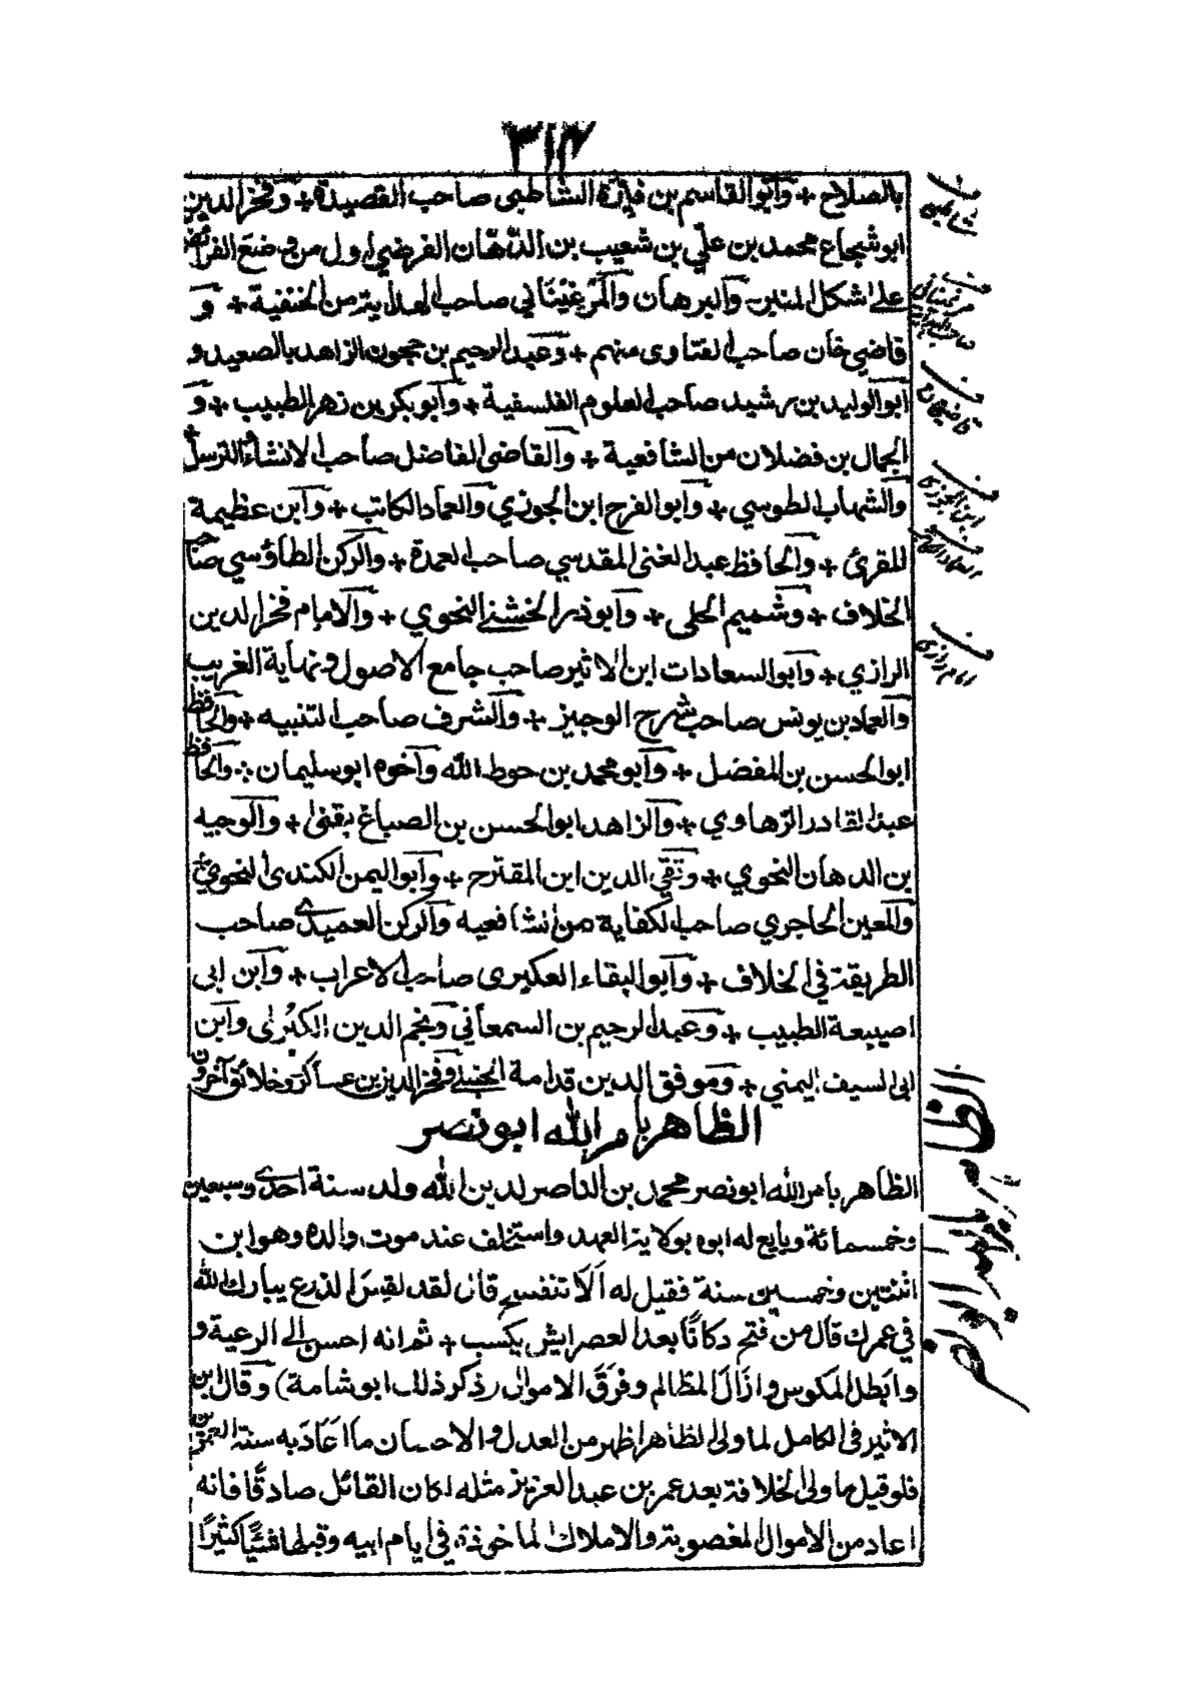 ٣١٧
بالصلاح + وأبو القاسم بن فيرّة الشاطبي صاحب القصيدة + وفخر الدين
ابو شجاع محمد بن علي بن شعيب بن الدّهان الفرضي اول من وضع الفرائض
على شكل المنبر وآلبرهان وآلمرغيناني صاحب الهداية من الحنفية + و
قاضي خان صاحب الفتاوى منهم + وعبد الرحيم بن حجون الزاهد بالصعيد و
ابو الوليد بن رشيد صاحب العلوم الفلسفية + وأبو بكر بن زهر الطبيب + و
الجمال بن فضلان من الشافعية + وآلقاضي الفاضل صاحب الانشاء والترسل +
وآلشهاب الطوسي + وأبو الفرج ابن الجوزي وآلعماد الكاتب + وآبن عظيمة
المقرئ + وآلحافظ عبد الغنى المقدسي صاحب العمدة + وآلركن الطاؤسي صاحب
الخلاف + وشميم الحلى + وأبو ذر الخشني النحوي + وآلامام فخر الدين
الرازي + وأبو السعادات ابن الاثير صاحب جامع الاصول ونهاية الغريب
وآلعماد بن يونس صاحب شرح الوجيز + وآلشرف صاحب التنبيه + وآلحافظ
ابو الحسن بن المفضل + وأبو محمد بن حوط الله وآخوه ابو سليمان + وآلحافظ
عبد القادر الرّهاوي + وآلزاهد ابو الحسن بن الصباغ بقنى + وآلوجيه
بن الدهان النحوي + وتقي الدين ابن المقترح + وأبو اليمن الكندى النحوي +
وآلمعين الحاجري صاحب الكفاية من الشافعيه وآلركن العميدي صاحب
الطريقة في الخلاف + وأبو البقاء العكبرى صاحب الاعراب + وآبن ابى
اصيبعة الطبيب + وعبد الرحيم بن السمعاني ونجم الدين الكبرى وآبن
ابى السيف اليمني + وموفق الدين قدامة الحنبلي وفخر الدين بن عساكر وخلائق آخرون
الظاهر بامر الله ابو نصر
الظاهر بامر الله ابو نصر محمد بن الناصر لدين الله ولد سنة احدى وسبعين
وخمسمائة وبايع له ابوه بولاية العهد واستخلف عند موت والده وهو ابن
اثنتين وخمسين سنة فقيل له ألا تنفسح قال لقد لقس الذرع يبارك الله
في عمرك قال من فتح دكانًا بعد العصر ايش يكسب + ثم انه احسن الى الرعية و
وابطل المكوس وازال المظالم وفرق الاموال (ذكر ذلك ابو شامة) وقال ابن
الاثير في الكامل لما ولى الظاهر اظهر من العدل والاحسان ما اعاد به سنة العمرين
فلو قيل ما ولى الخلافة بعد عمر بن عبد العزيز مثله لكان القائل صادقًا فانه
اعاد من الاموال المغصوبة والاملاك الماخوذة في ايام ابيه وقبلها شيئًا كثيرًا
ف شاطبي
ف مرغيناني صاحب الهداية
ف قاضيخان
ف ابن الجوزي
ف رازي
الظاهر بامر الله ابو نصر